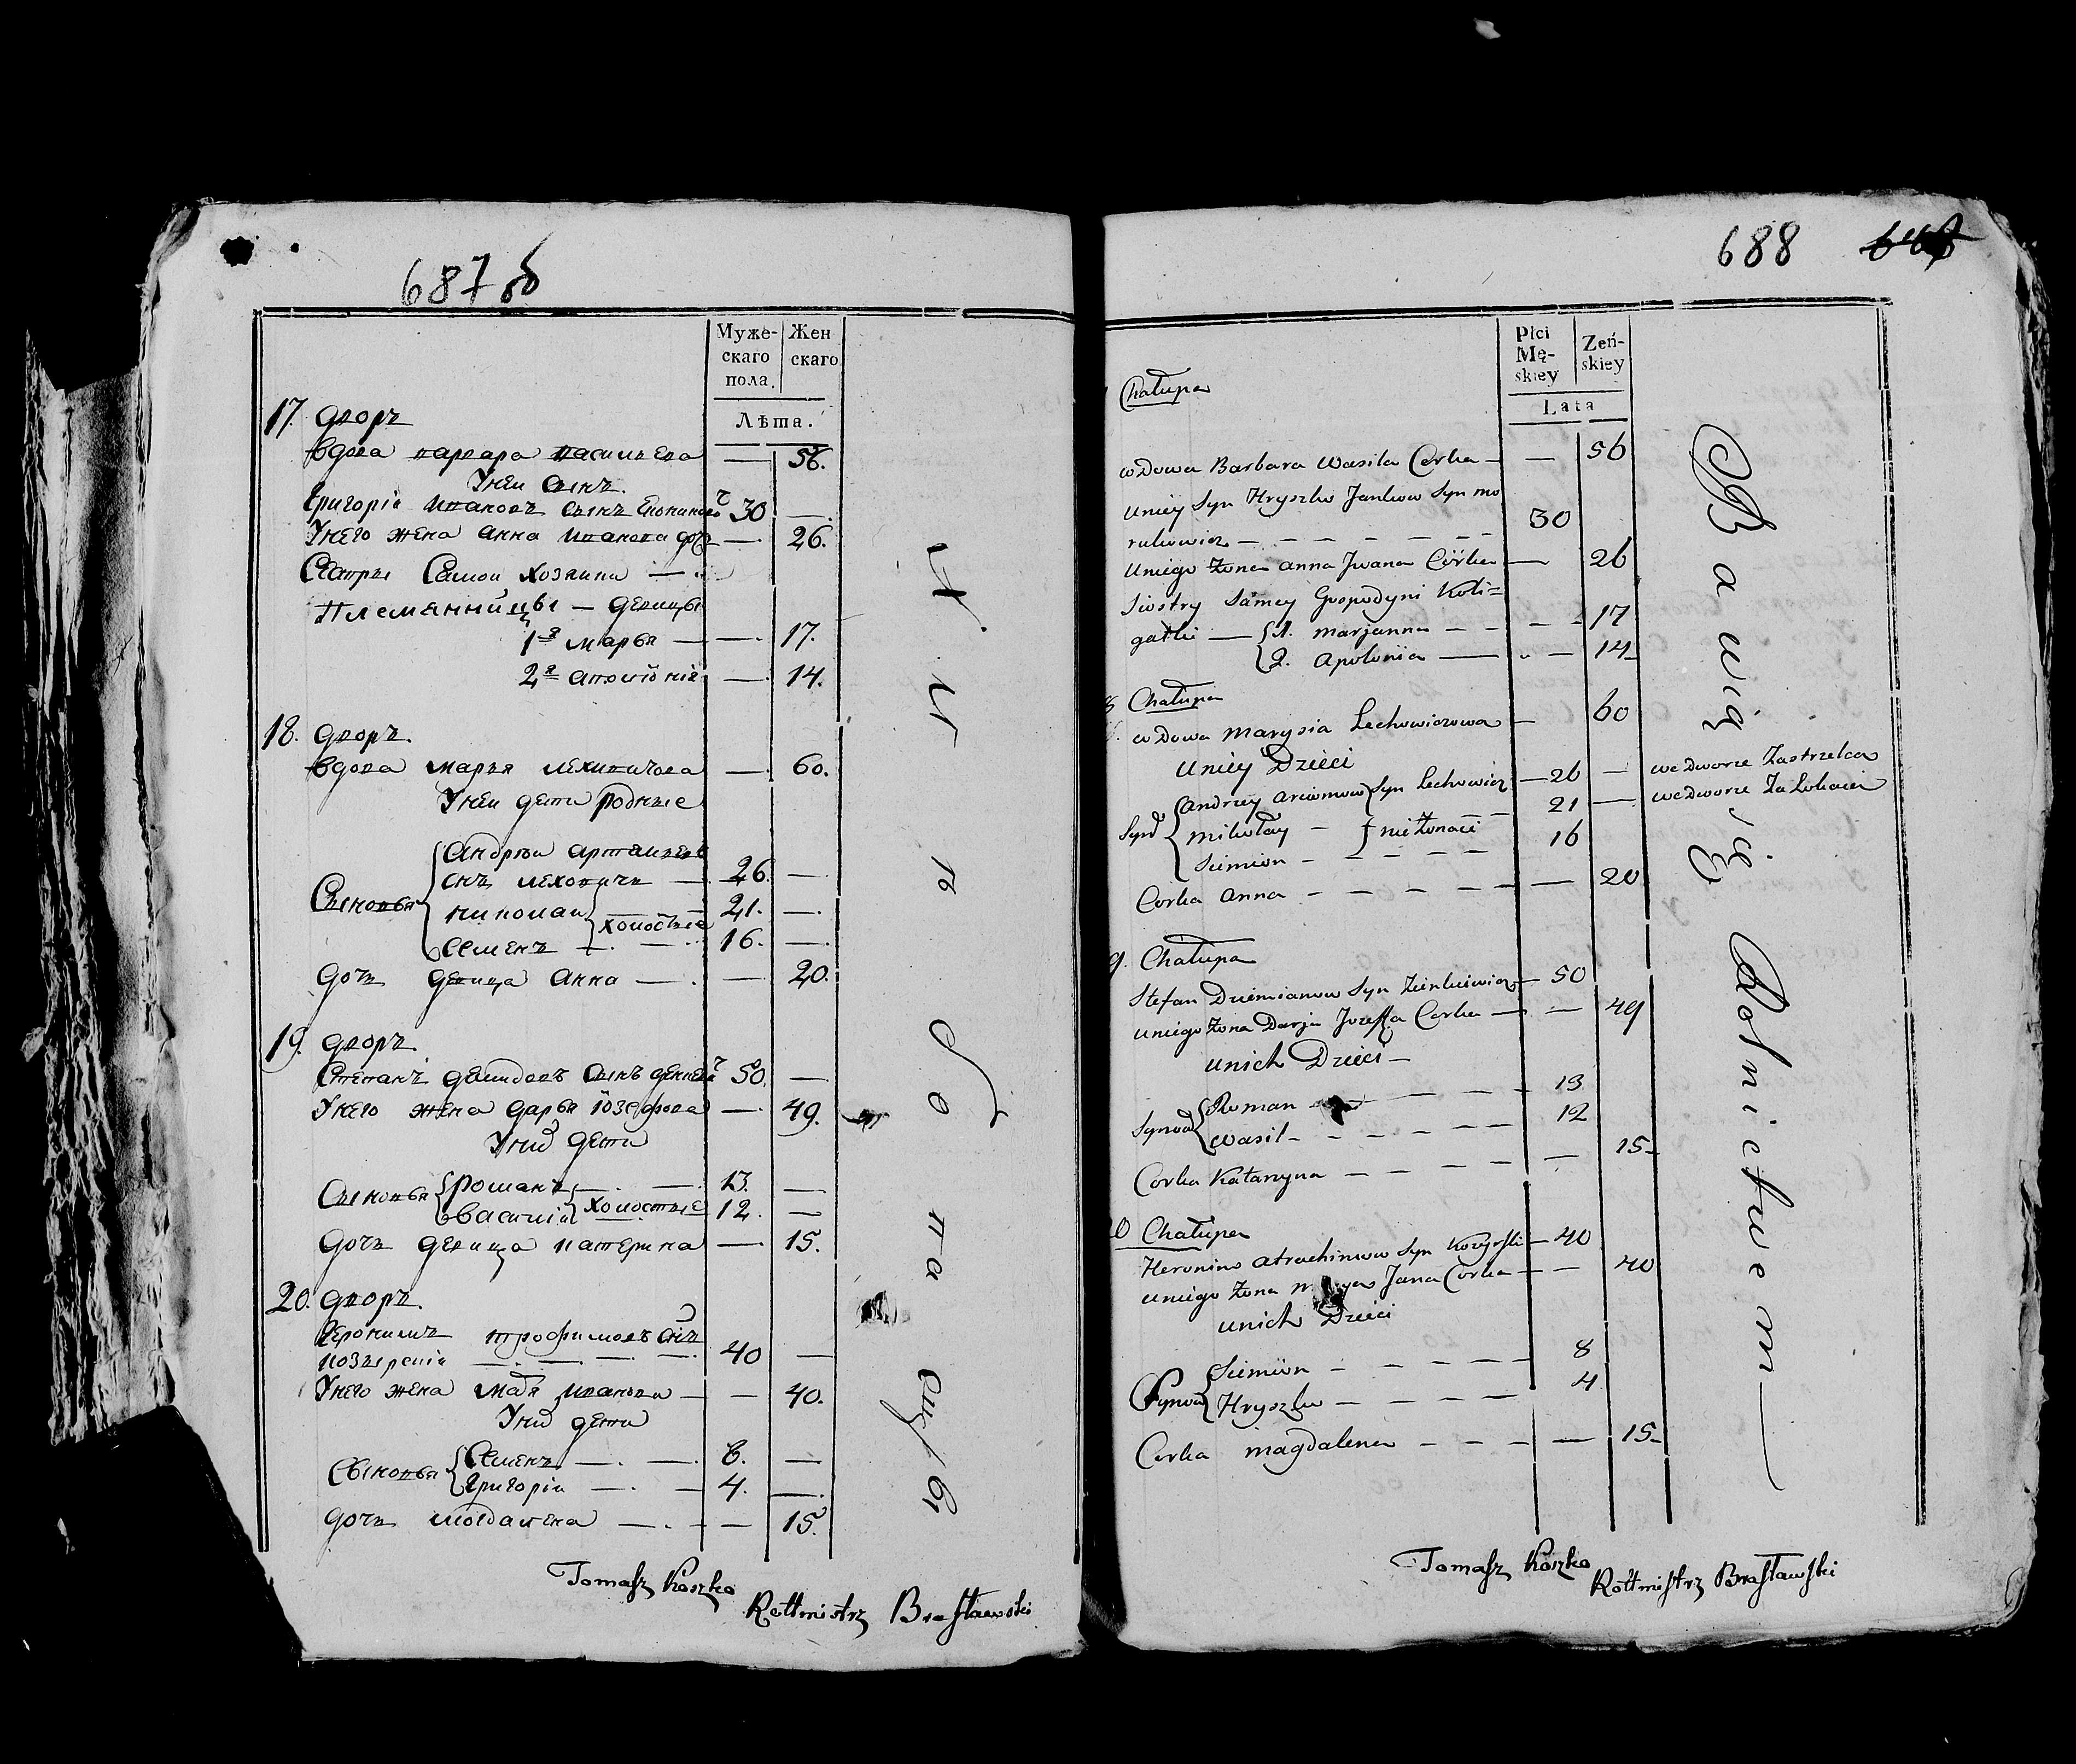 687 об
Муже-
скаго
пола.
Жен
скаго
Лѣта.
17. дворъ
вдова варвара васильева — 56.
Унеи сынъ.
Григоріи ивановъ сынъ 30 —
Унего жена анна иванова дочь — 26.
Сестры Самои хозяики —
Племянницы — девицы
1я марья — — 17.
2я аполонія — 14.
18. дворъ.
вдова марья лехновичова — 60.
Унеи дети родные
Андреи артемьевъ
снъ леховичъ — 26. —
Сыновья николаи 21. —
холостые
Семенъ — 16. —
дочь девица Анна — — 20.
19. дворъ
Степанъ демидовъ сынъ 50. —
Унего жена дарья іозефова — 49.
Уних дети
Сыновья романъ — 13. —
василіи холостые 12. —
дочь девица катерина — 15.
20. дворъ.
Геронимъ трофимовъ снъ
козырскіи — 40 —
Унего жена иванова — — 40.
Уних дети
Сыновья Семенъ — 8. —
Григоріи — 4. —
дочь магдалена — — 15.
Хлебопашцы
Tomasz Koszko
Rottmistrz Brasławski
688
Płci
Mę-
skiey
Zeń-
skiey
Lata
Chałupa
wdowa Barbara Wasila Corka — — 56
uniey Syn Hryszko Jankow Syn mo
rulewicz — 30
uniego żona anna Jwana Córka — 26
Siostry Samey Gospodyni Koli=
gatki — 1. marjanna — 17
2. apolonia — 14
8 Chałupa
wdowa marysia Lechowiczowa — 60
uniey Dzieci
andrzey arciomow Syn Lechowicz — 26 — we dworze Zastrzelca
Synow mikołay — nieżonaci 21 — we dworze Za Lokaia
Siemion — 16
Corka anna — — 20
9. Chałupa
Stefan Dziemianow Syn Zienkiewicz — 50
uniego żona Darja Jozefa Corka — — 49
unich Dzieci —
Synow Roman — 13
wasil — 12
Corka Katarzyna — — 15
0 Chałupa
Heronim atrachimow Syn Kozyrski — 40
uniego żona Jana Corka — — 40
unich Dzieci
Synow Siemion — 8
Hryszko — 4
Corka magdalena — — 15
Bawią się Rolnictwem —
Tomasz Koszko
Rottmistrz Brasławski